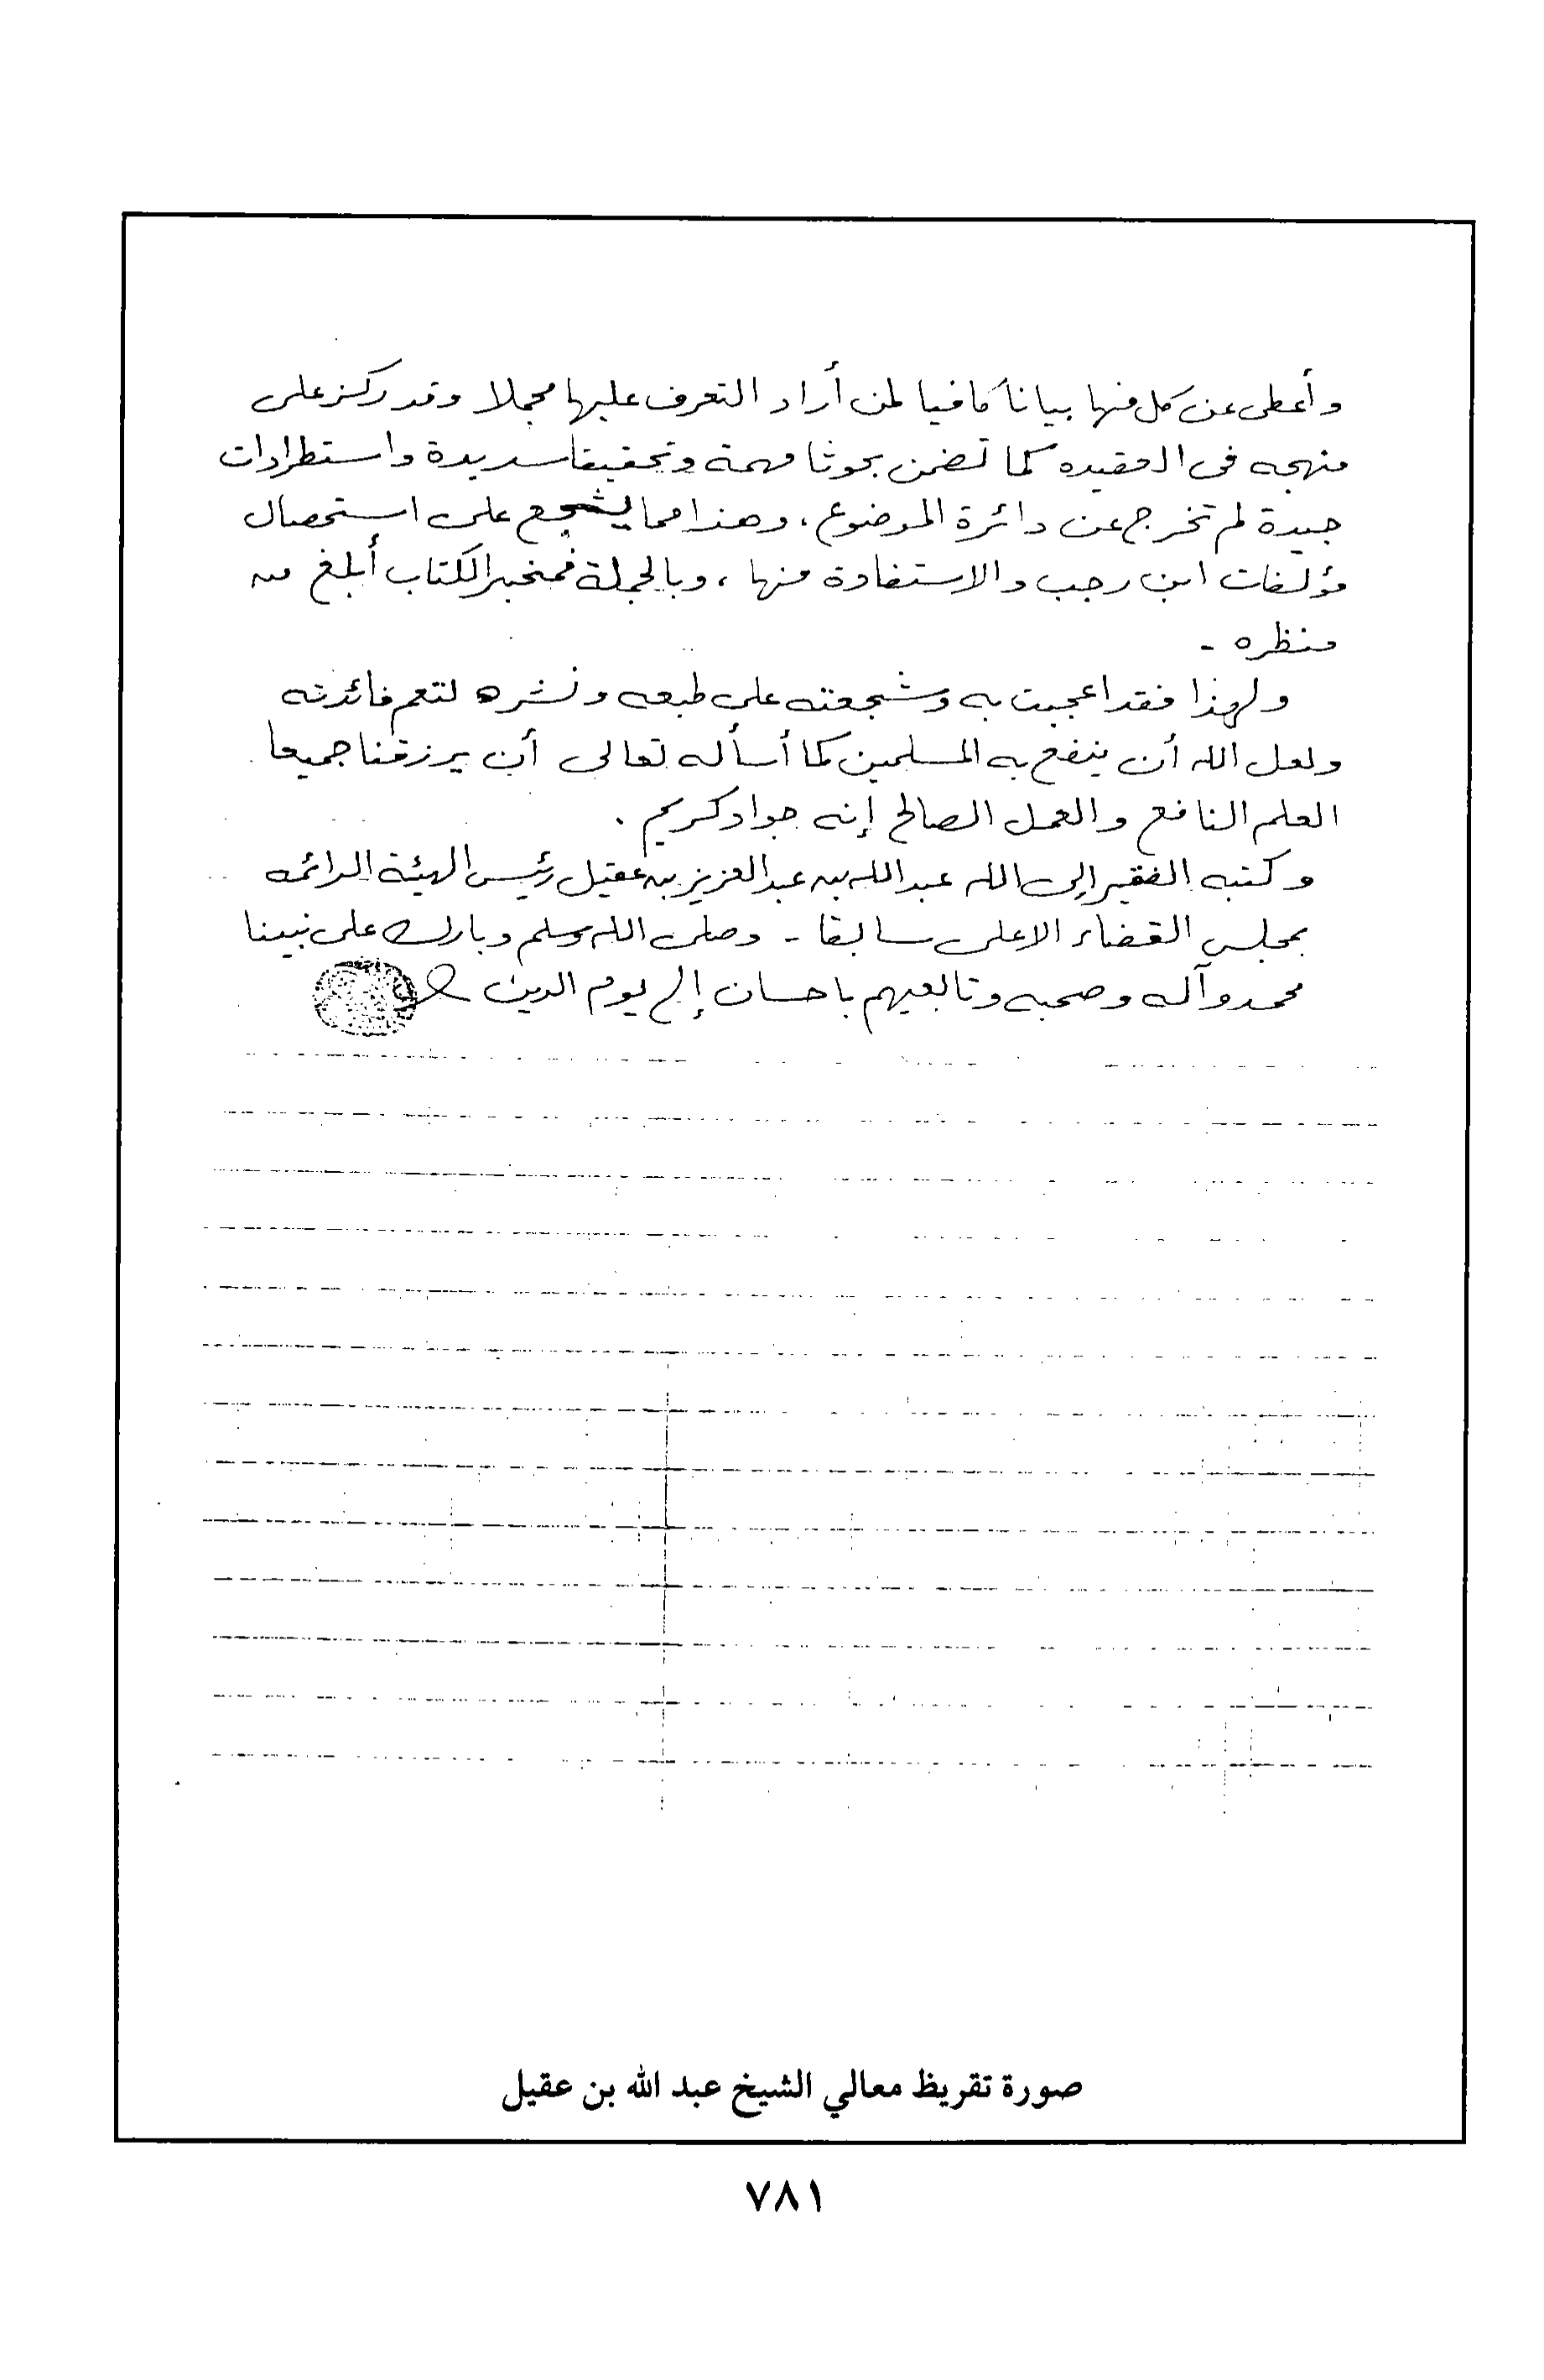 وأعطى عن كل منها بياناً كافيا لمن أراد التعرف عليها مجملا وقد ركز على
منهجه في العقيده كما تضمن بحوثا مهمة وتحقيقا سديدة واستطرادات
جيدة لم تخرج عن دائرة الموضوع ، وهذا مما يشجع على استحصال
مؤلفات ابن رجب والاستفادة منها ، وبالجملة فمخبر الكتاب أبلغ من
منظره -
ولهذا فقد اعجبت به وشجعته على طبعه ونشره لتعم فائدته
ولعل الله أن ينفع به المسلمين كما أسأله تعالى أن يرزقنا جميعا
العلم النافع والعمل الصالح إنه جواد كريم .
وكتبه الفقير إلى الله عبد الله بن عبد العزيز بن عقيل رئيس الهيئة الدائمه
بمجلس القضاء الاعلى سابقا - وصلى الله وسلم وبارك على نبينا
محمد وآله وصحبه وتابعيهم باحسان إلى يوم الدين
صورة تقريظ معالي الشيخ عبد الله بن عقيل
٧٨١